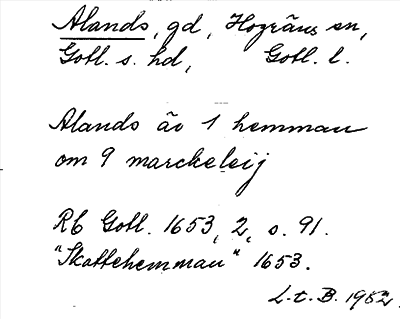 Alands, gd, Hogräns sn,
Gotl. s. hd, Gotl. l.
Alands är 1 hemman
om 9 marckeleij
Rb Gotl. 1653, 2, s. 91.
"Skattehemman" 1653.
L.t.B. 1952.